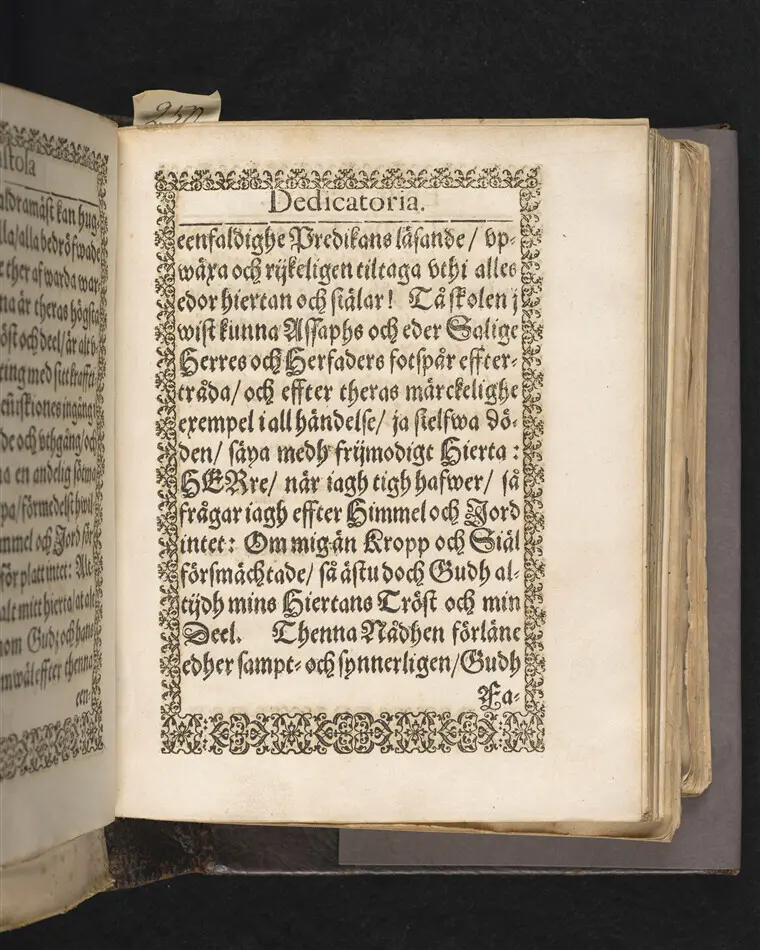 250
istola
aldramäst kan hug-
lla/ alla bedröfwade
ther af warda war
na är theras högsta
öst och deel/ är alt
ring med sitt krafft
ingång
de och vthgång/ och
a en andelig
pa/ förmedelst hwil-
mmel och Jord för
för platt intet: Al-
alt mitt hierta/ at al-
nom Gud; och hans
mwäl effter thenna
een-
Dedicatoria.
eenfaldighe Predikans läsande/ vp-
wäxa och rijkeligen tiltaga vthi alles
edor hiertan och siälar! Tå skolen j
wist kunna Assaphs och eder Salige
Herres och Herfaders fotspår effter-
tråda/ och effter theras märckelighe
exempel i all händelse/ ja sielfwa dö-
den/ säya medh frijmodigt Hierta:
HERre/ när iagh tigh hafwer/ så
frågar iagh effter Himmel och Jord
intet: Om mig än Kropp och Siäl
försmächtade/ så ästu doch Gudh al-
tijdh mins Hiertans Tröst och min
Deel. Thenna Nådhen förläne
edher sampt- och synnerligen/ Gudh
Fa-